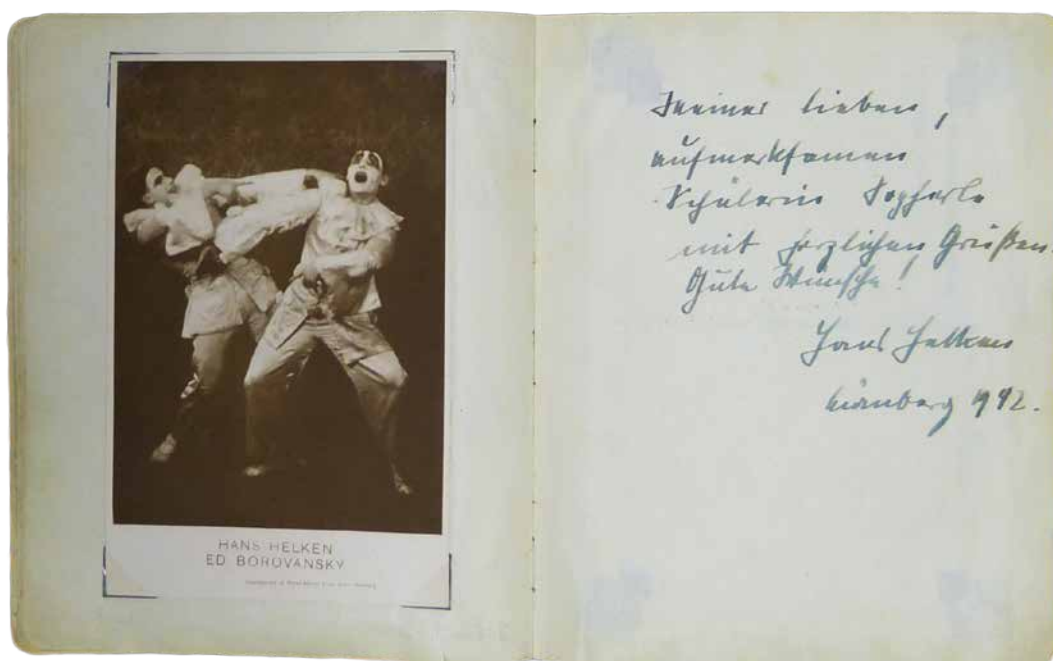 HANS HELKEN
ED BOROVANSKY
Meiner lieben,
aufmerksamen
Schülerin
mit herzlichen Grüßen.
Gute Wünsche!
Hans Helken
Nürnberg 1942.